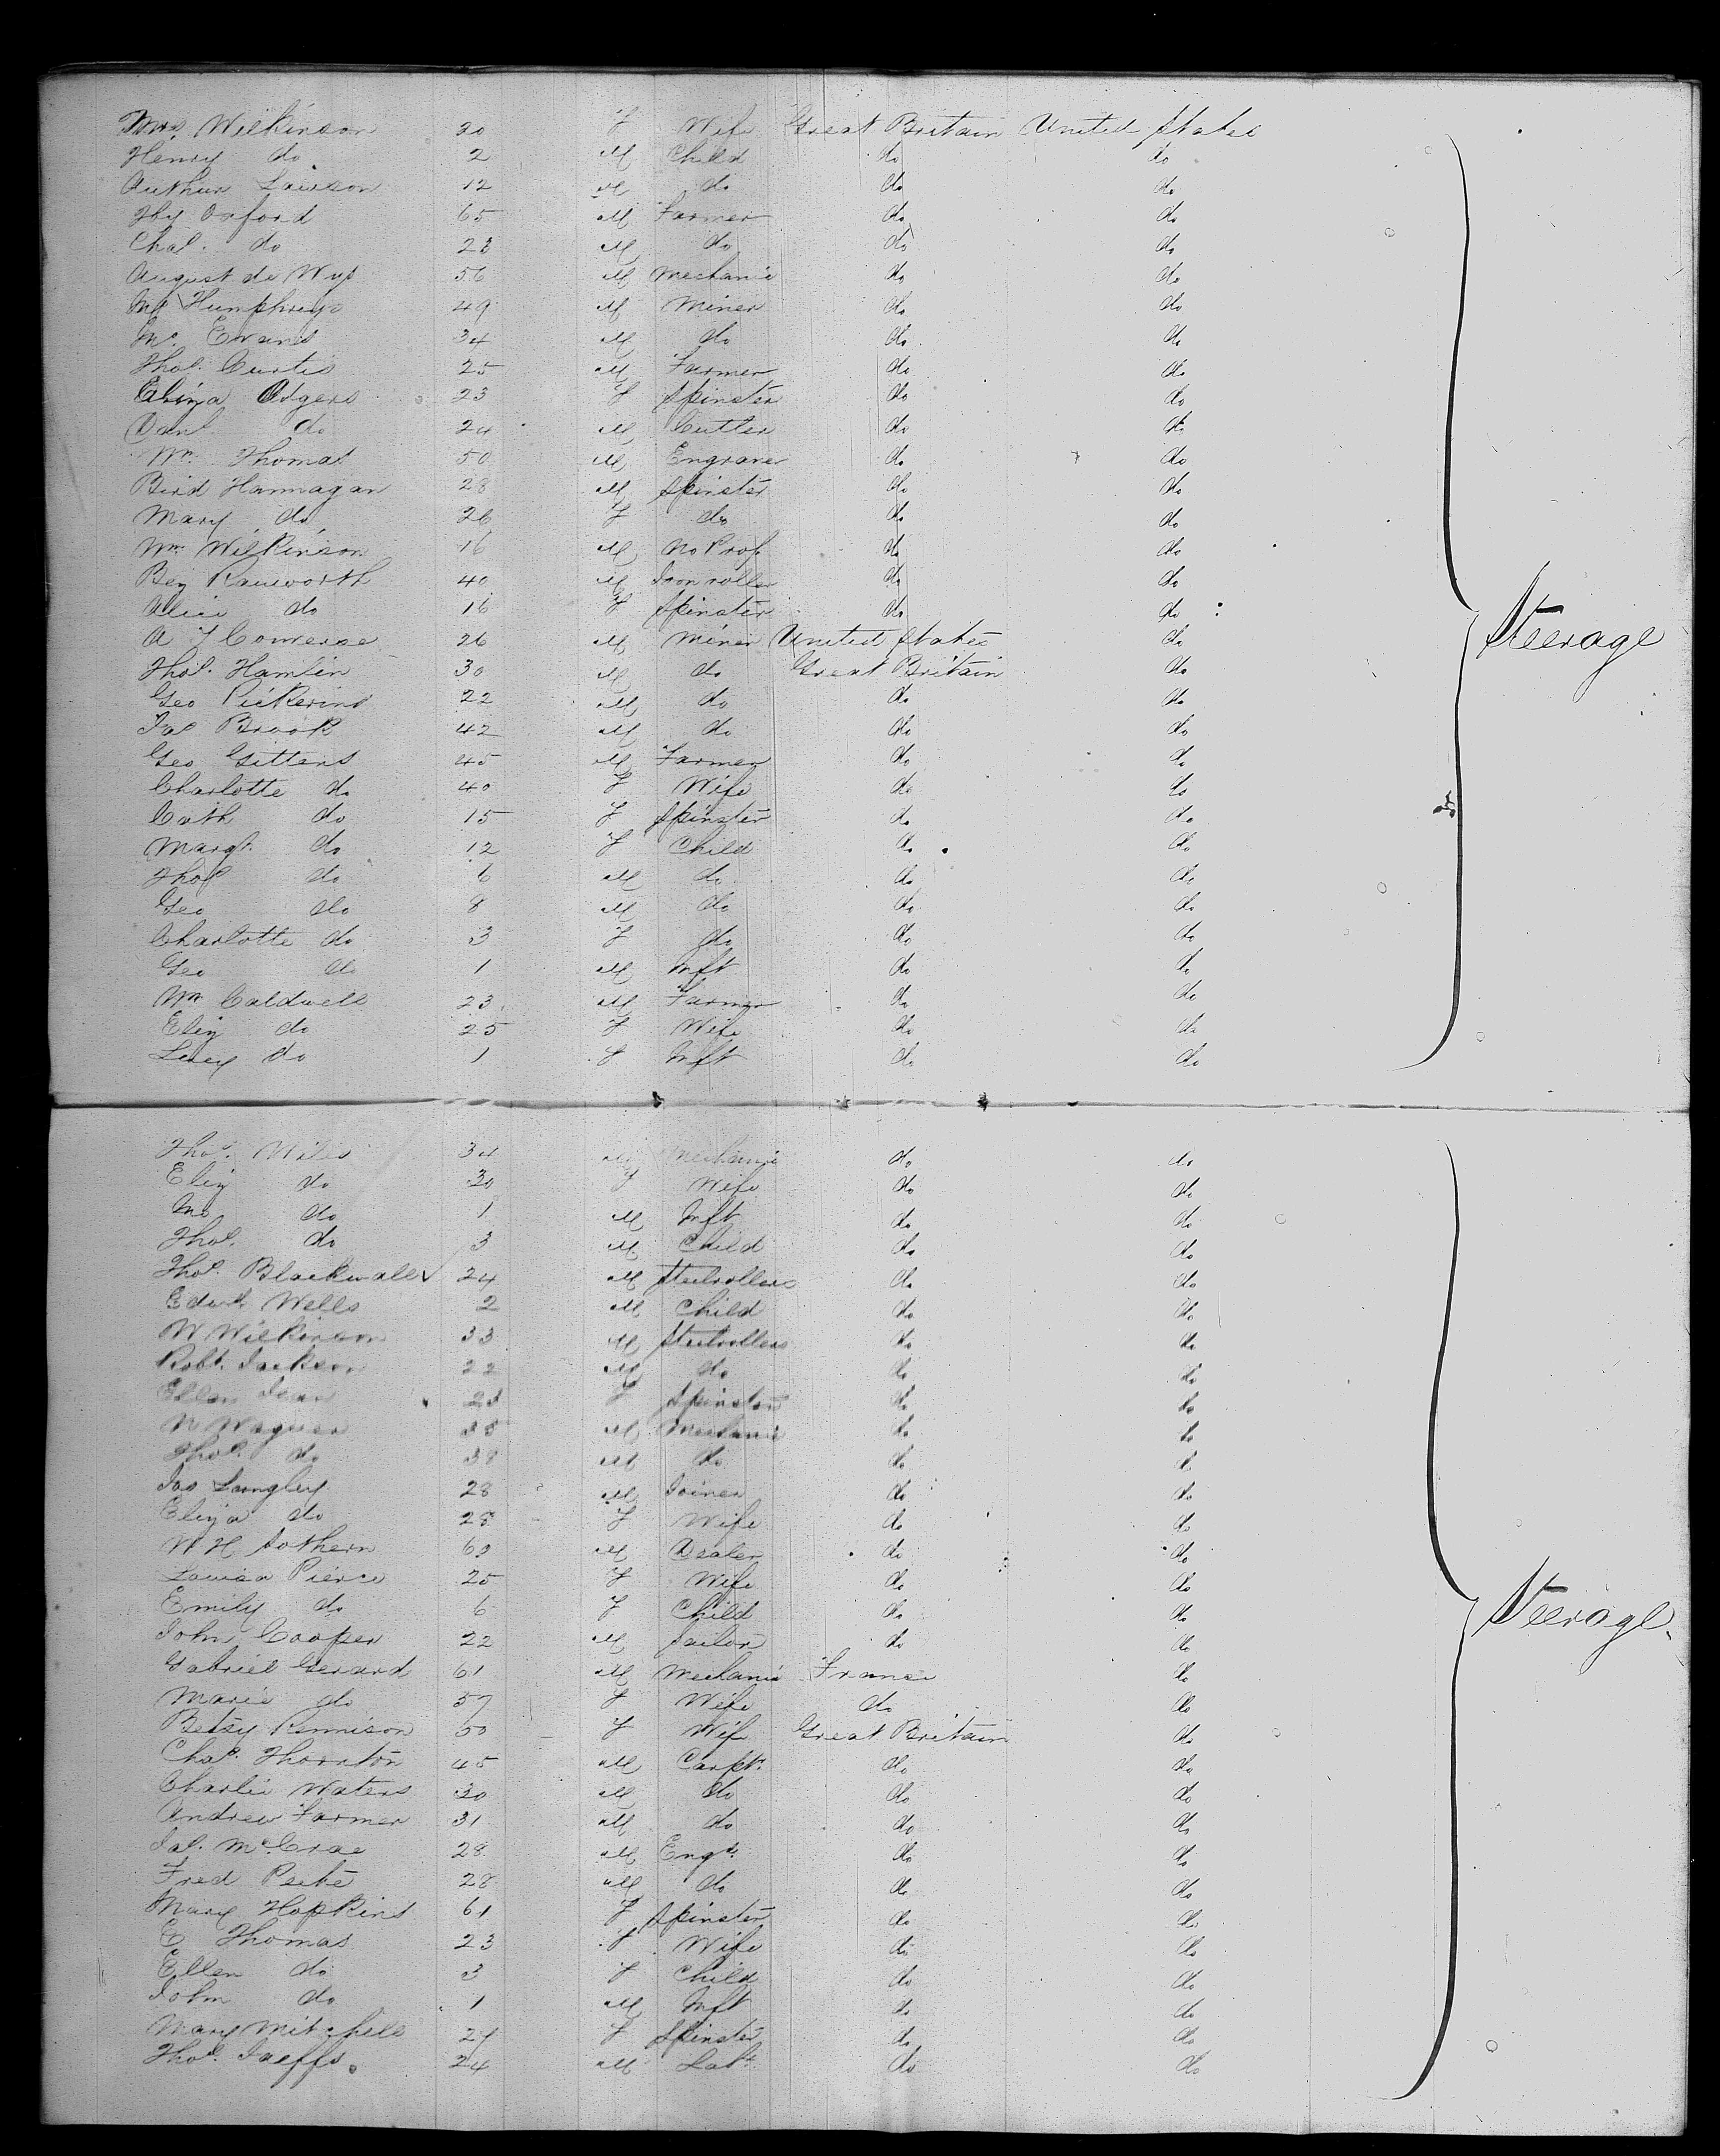 Mrs. Wilkinson 30 F Wife Great Britain United States
Henry do 2 M Child do do
Arthur Lawson 12 M do do do
Hy Oxford 65 M Farmer do do
Chas. do 22 M do do do
August de 56 M Mechanic do do
Humphreys 49 M Miner do do
Evans 34 M do do do
Thos. Curtis 25 M Farmer do do
Eliza Odgers 23 F Spinster do do
Danl do 24 M Cutter do do
Wm. Thomas 50 M Engraver do do
Bird Hannagan 28 M Spinster do do
Mary do 26 F do do do
Wm. Wilkinson 16 M No Prof do do
Benj Raworth 40 M Iron roller do do
Alice do 16 F Spinster do do
A F Converse 26 M Miner United States do
Steerage
Thos. Hamlin 30 M do Great Britain do
Geo Pickering 22 M do do do
Jas Brook 42 M do do do
Geo Gittens 45 M Farmer do do
Charlotte do 40 F Wife do do
Cath do 15 F Spinster do do
Margt. do 12 F Child do do
Thos do 6 M do do do
Geo do 8 M do do do
Charlotte do 3 F do do do
Geo do 1 M Inft do do
Wm Caldwell 23 M Farmer do do
Eliz do 25 F Wife do do
Lucy do 1 F Inft do do
Thos. Wiles 34 M Mechanic do do
Eliz do 30 F Wife do do
do 1 M Inft do do
Thos. do 3 M Child do do
Thos. Blackwall 24 M Steelrollers do do
Edwd. Wells 2 M Child do do
W Wilkinson 33 M Steelrollers do do
Robt. Jackson 22 M do do do
Ellen 23 F Spinster do do
Wagner M Mechanic do do
Thos. do 38 M do do do
Jas Langley 28 M Joiner do do
Eliza do 28 F Wife do do
W H Sothern 60 M Dealer do do
Louisa Pierce 25 F Wife do do
Emily do 6 F Child do do
Steerage.
John Cooper 22 M Sailor do do
Gabriel Gerard 61 M Mechanic France do
Marie do 57 F Wife do do
Betsy Rennison 50 F Wife Great Britain do
Chas. Thornton 45 M Carptr. do do
Charlie Waters 30 M do do do
Andrew Farmer 31 M do do do
Jas. McCrae 28 M Engr. do do
Fred 28 M do do do
Mary Hopkins 61 F Spinster do do
E Thomas 23 F Wife do do
Ellen do 3 F Child do do
John do 1 M Inft do do
Mary Mitchell 27 F Spinster do do
Thos. 24 M Labr. do do